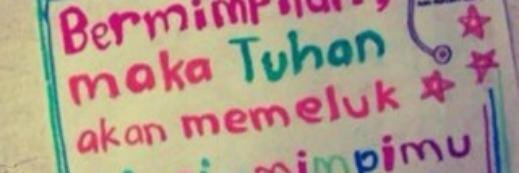 Bermimpilah,
maka Tuhan
akan memeluk
mimpimu